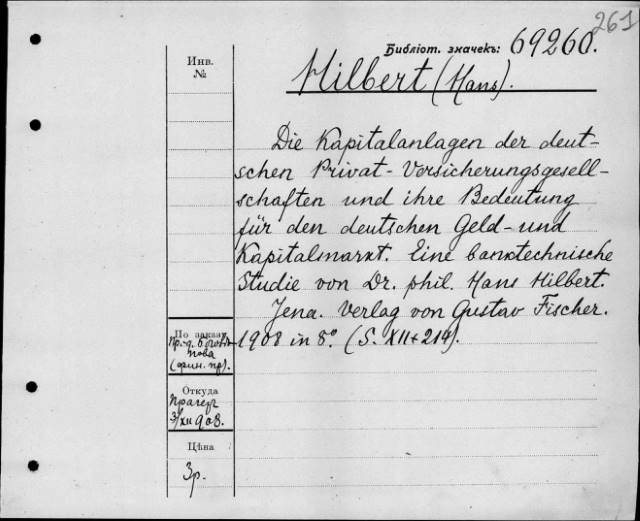 261
Библіот. значекъ: 69260.
Инв.
№
Hilbert (Hans).
Die Kapitalanlagen der deut-
schen Privat-Versicherungsgesell-
schaften und ihre Bedeutung
für den deutschen Geld- und
Kapitalmarkt. Eine banktechnische
Studie von Dr. phil. Hans Hilbert.
Jena. Verlag von Gustav Fischer.
1908 in 8º. (S. XII+214).
По заказу
(фин. пр).
Откуда
Прагеръ
3/XII 908.
Цѣна
3р.